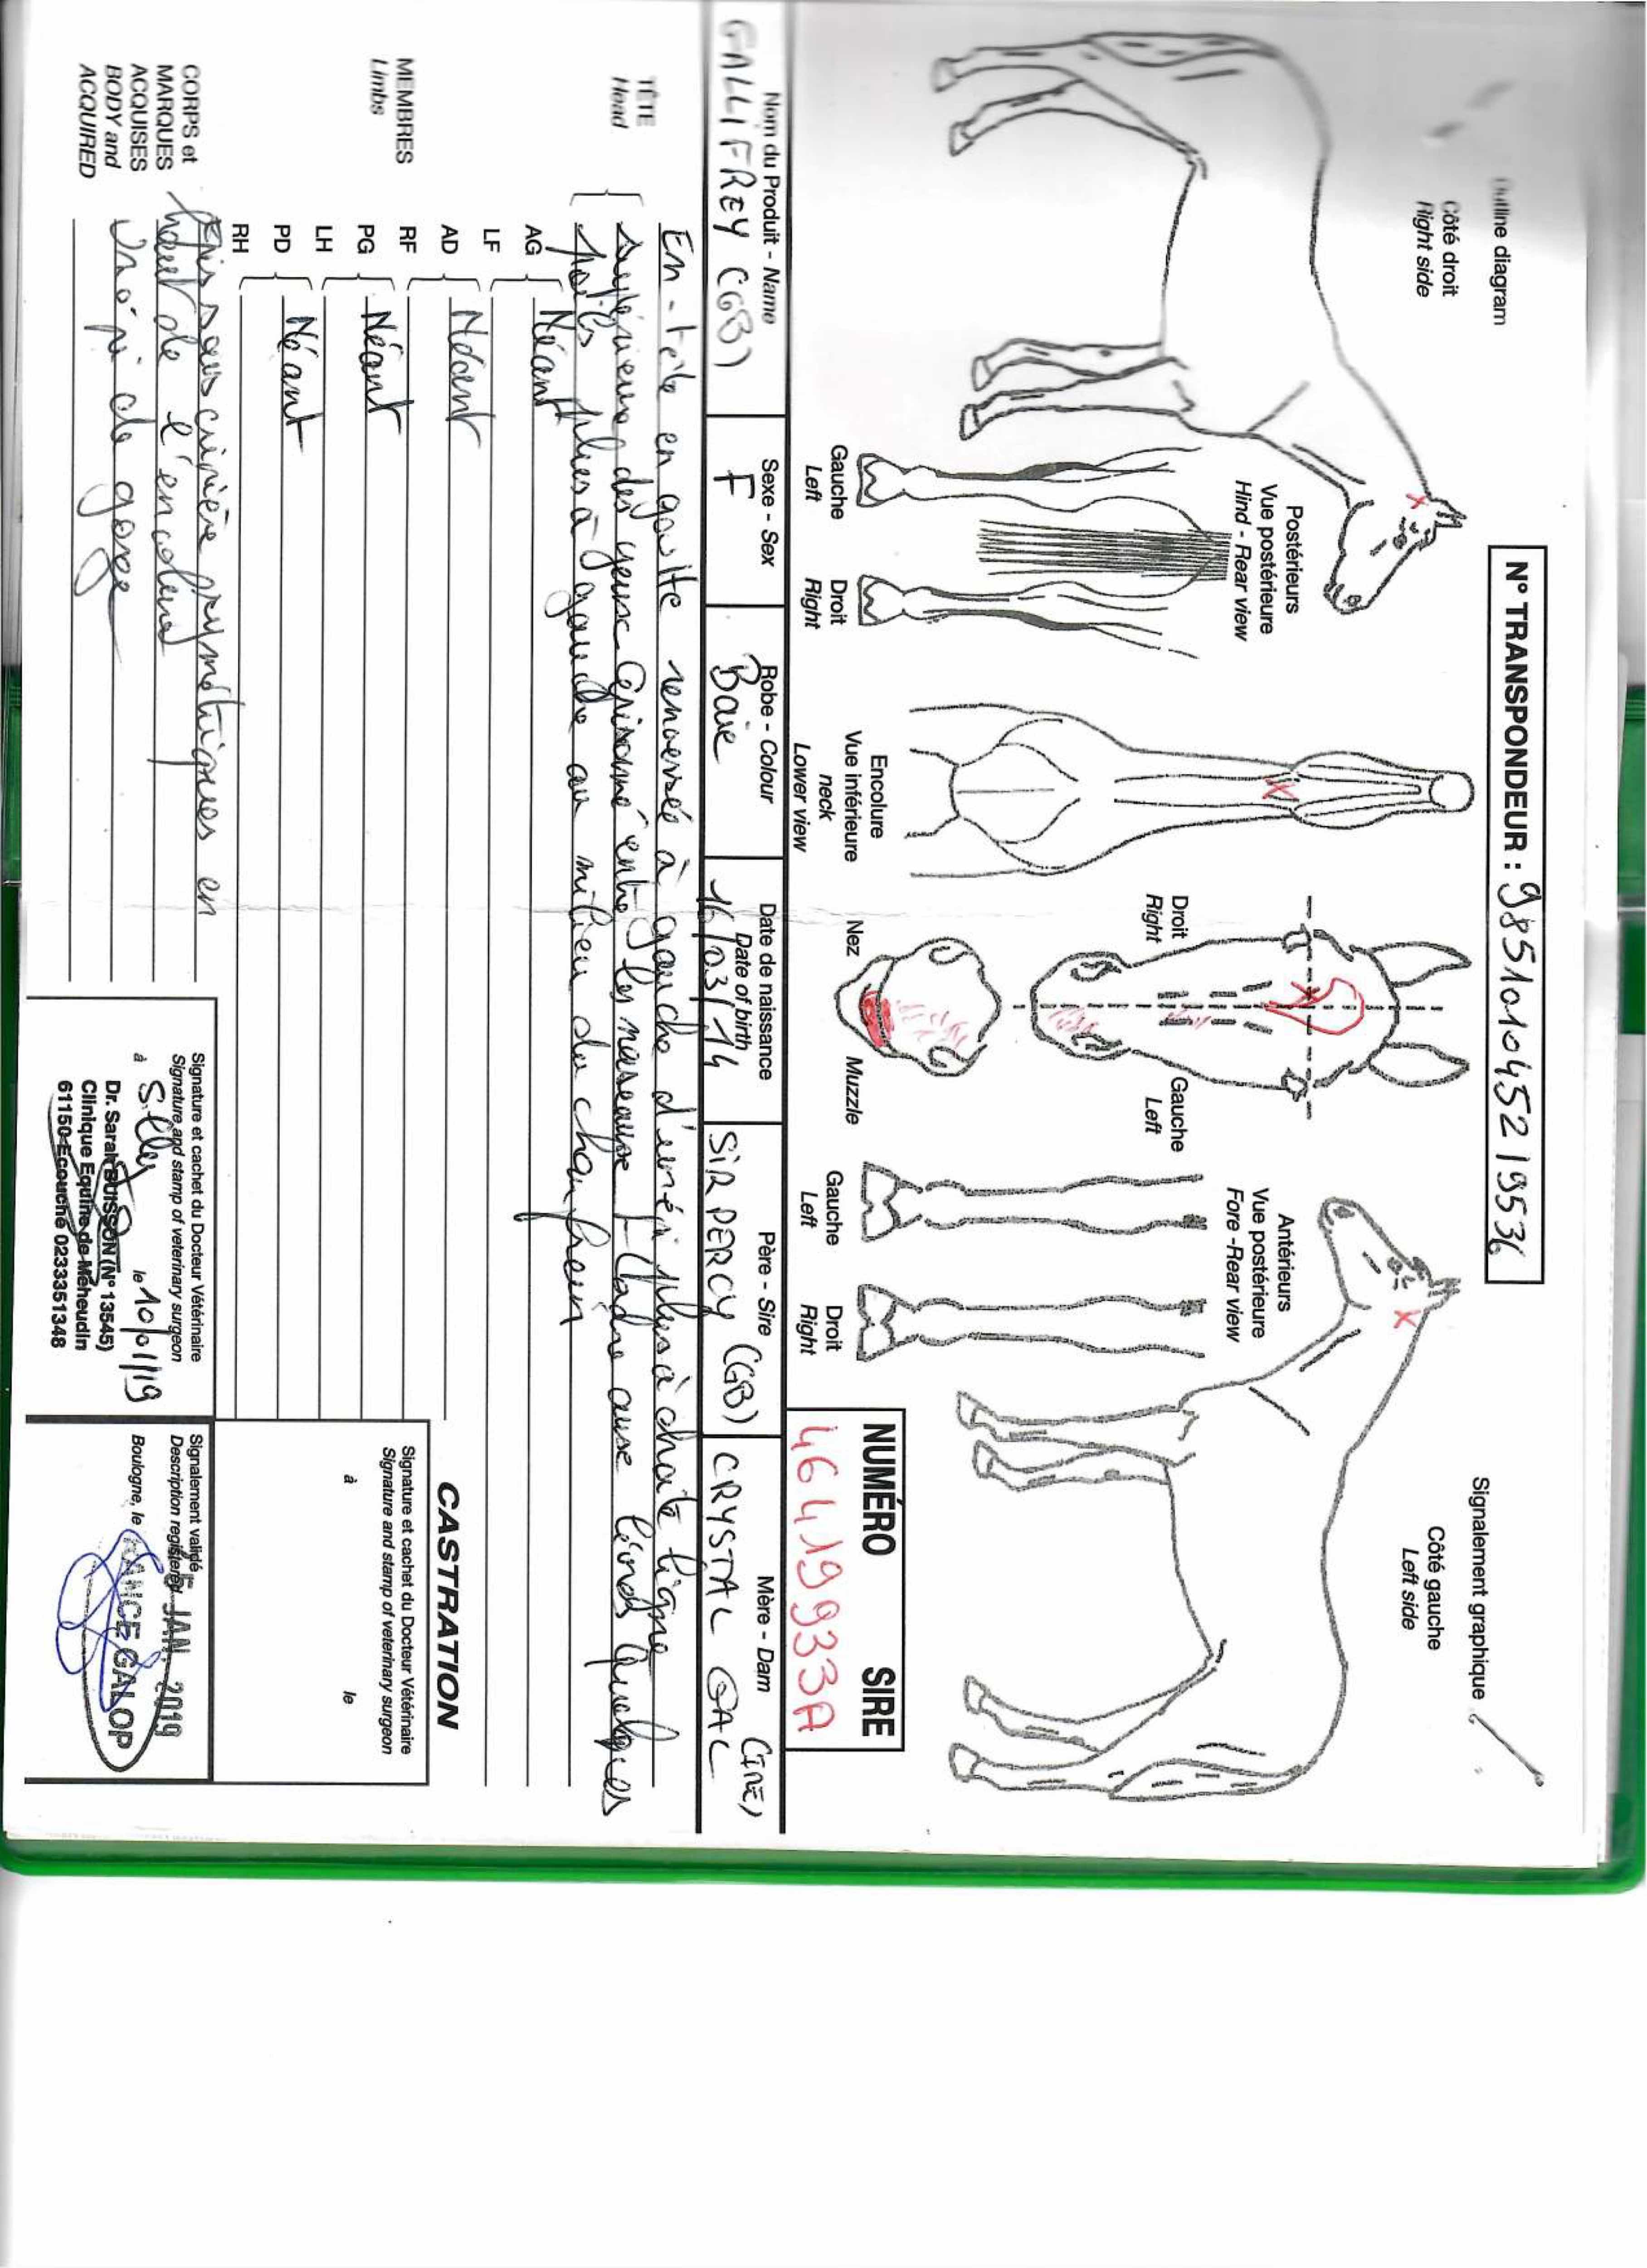 Outline diagram
N° TRANSPONDEUR : 985101045219536
Signalement graphique
Côté droit
Right side
Côté gauche
Left side
Postérieurs
Vue postérieure
Hind - Rear view
Droit
Right
Gauche
Left
Antérieurs
Vue postérieure
Fore -Rear view
Gauche
Left
Droit
Right
Encolure
Vue inférieure
neck
Lower view
Nez
Muzzle
Gauche
Left
Droit
Right
NUMÉRO SIRE
46419933A
Nom du Produit - Name
GALLIFREY (GB)
Sexe - Sex
F
Robe - Colour
Baie
Date de naissance
Date of birth
16/03/14
Père - Sire
SIR PERCY (GB)
Mère - Dam
CRYSTAL GAL (IRE)
TÊTE
Head
En-tête en goutte renversée à gauche d'un épi plus à droite ligne
supérieure des yeux. Grisonné entre les naseaux. Ladre aux lèvres. Quelques
poils plus à gauche au milieu du chanfrein
MEMBRES
Limbs
AG Néant
LF
AD Néant
RF
PG Néant
LH
PD Néant
RH
CASTRATION
Signature et cachet du Docteur Vétérinaire
Signature and stamp of veterinary surgeon
à le
CORPS et
MARQUES
ACQUISES
BODY and
ACQUIRED
Epis sous crinière symétriques en
haut de l'encolure
Un épi de gorge
Signature et cachet du Docteur Vétérinaire
Signature and stamp of veterinary surgeon
à le 10/01/19
Dr. Sarah BUISSON (N° 13545)
Clinique Equine de Méheudin
61150 Ecouché 0233351348
Signalement validé
Description registered
JAN. 2019
Boulogne, le
FRANCE GALOP